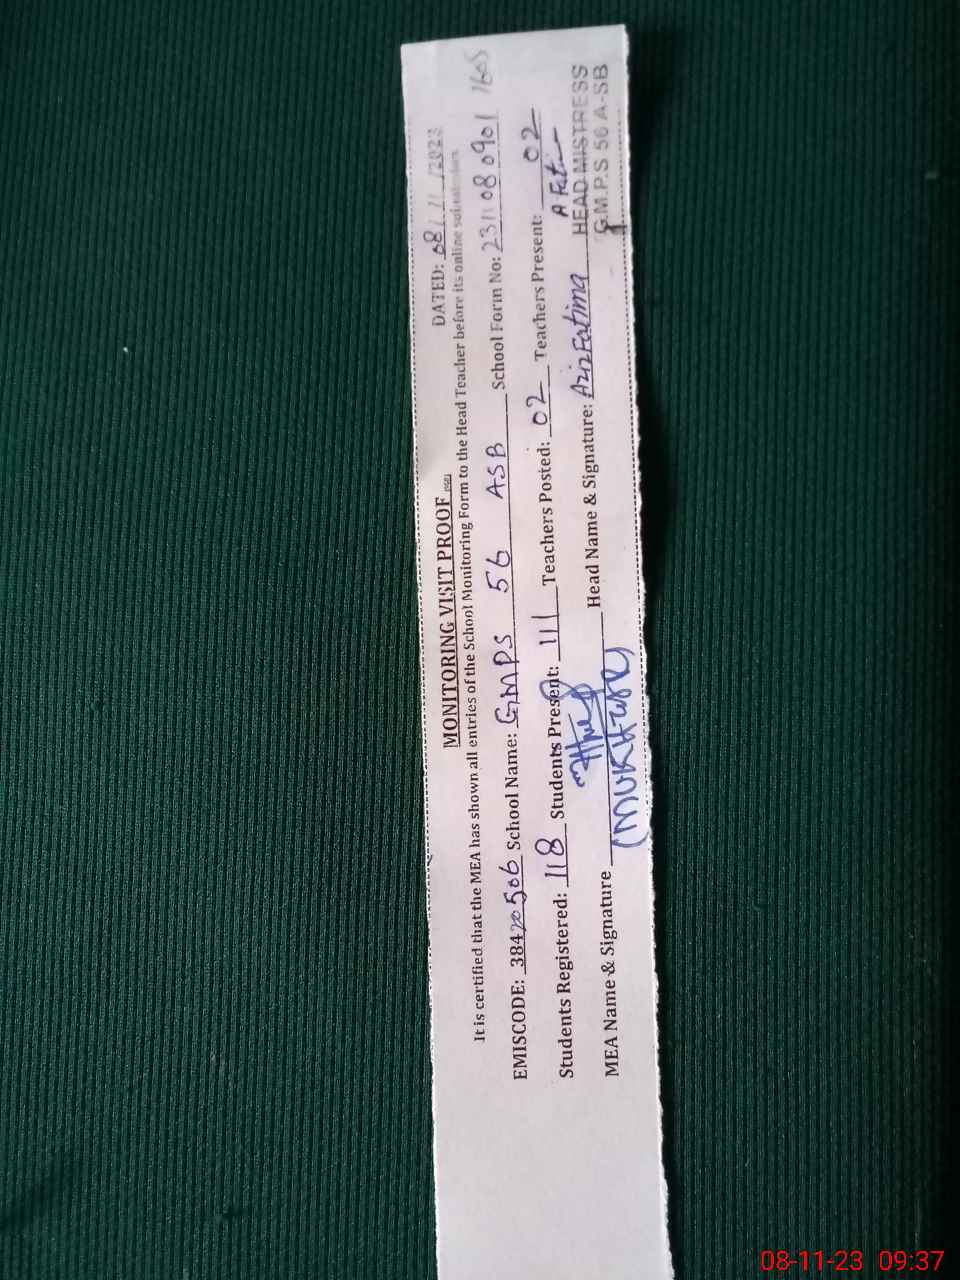 MONITORING VISIT PROOF DATED: 08/11/2023
It is certified that the MEA has shown all entries of the School Monitoring Form to the Head Teacher before its online submission. 1605
EMISCODE: 38420506 School Name: GMPS 56 ASB School Form No: 231108 0901
Students Registered: 118 Students Present: 111 Teachers Posted: 02 Teachers Present: 02
A Fati
MEA Name & Signature Head Name & Signature: Aziz Fatima HEAD MISTRESS
G.M.P.S 56 A-SB
08-11-23 09:37